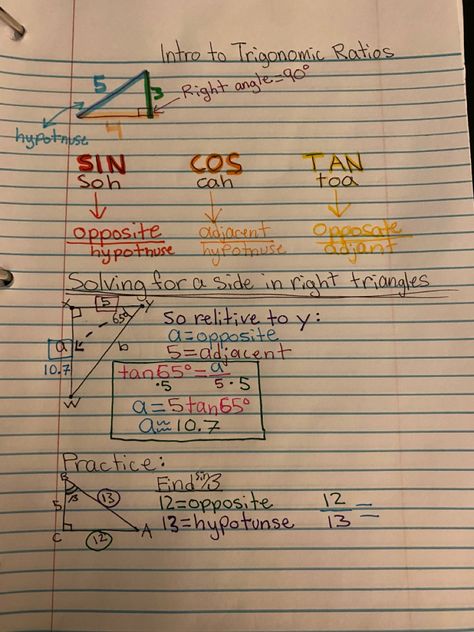 Intro to Trigonomic Ratios
5
3
Right angle=90°
4
hypotnuse
SIN COS TAN
Soh cah toa
opposite adjacent Opposate
hypotnuse hypotnuse adjant
Solving for a side in right triangles
X 5 Y
65°
a b
10.7
W
So relitive to y:
a=opposite
5=adjacent
tan65°=a
·5 5 ·5
a=5tan65°
a≈10.7
Practice:
B
β
5 13
C 12 A
Find sinβ
12=opposite
13=hypotunse
12
13 =